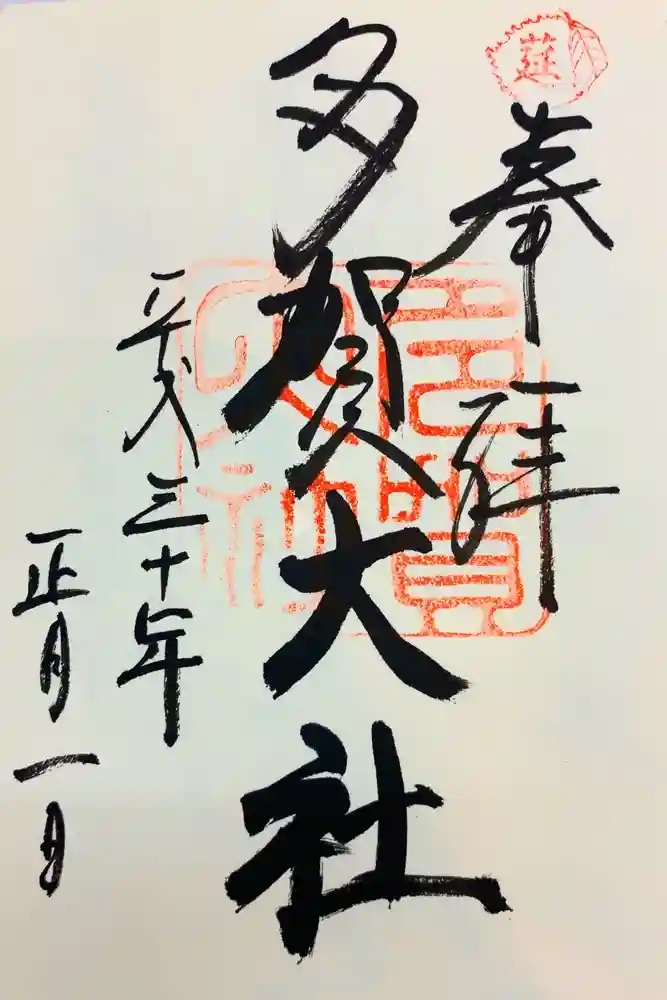 莚
奉拝
多賀大社
平成三十年
正月一日